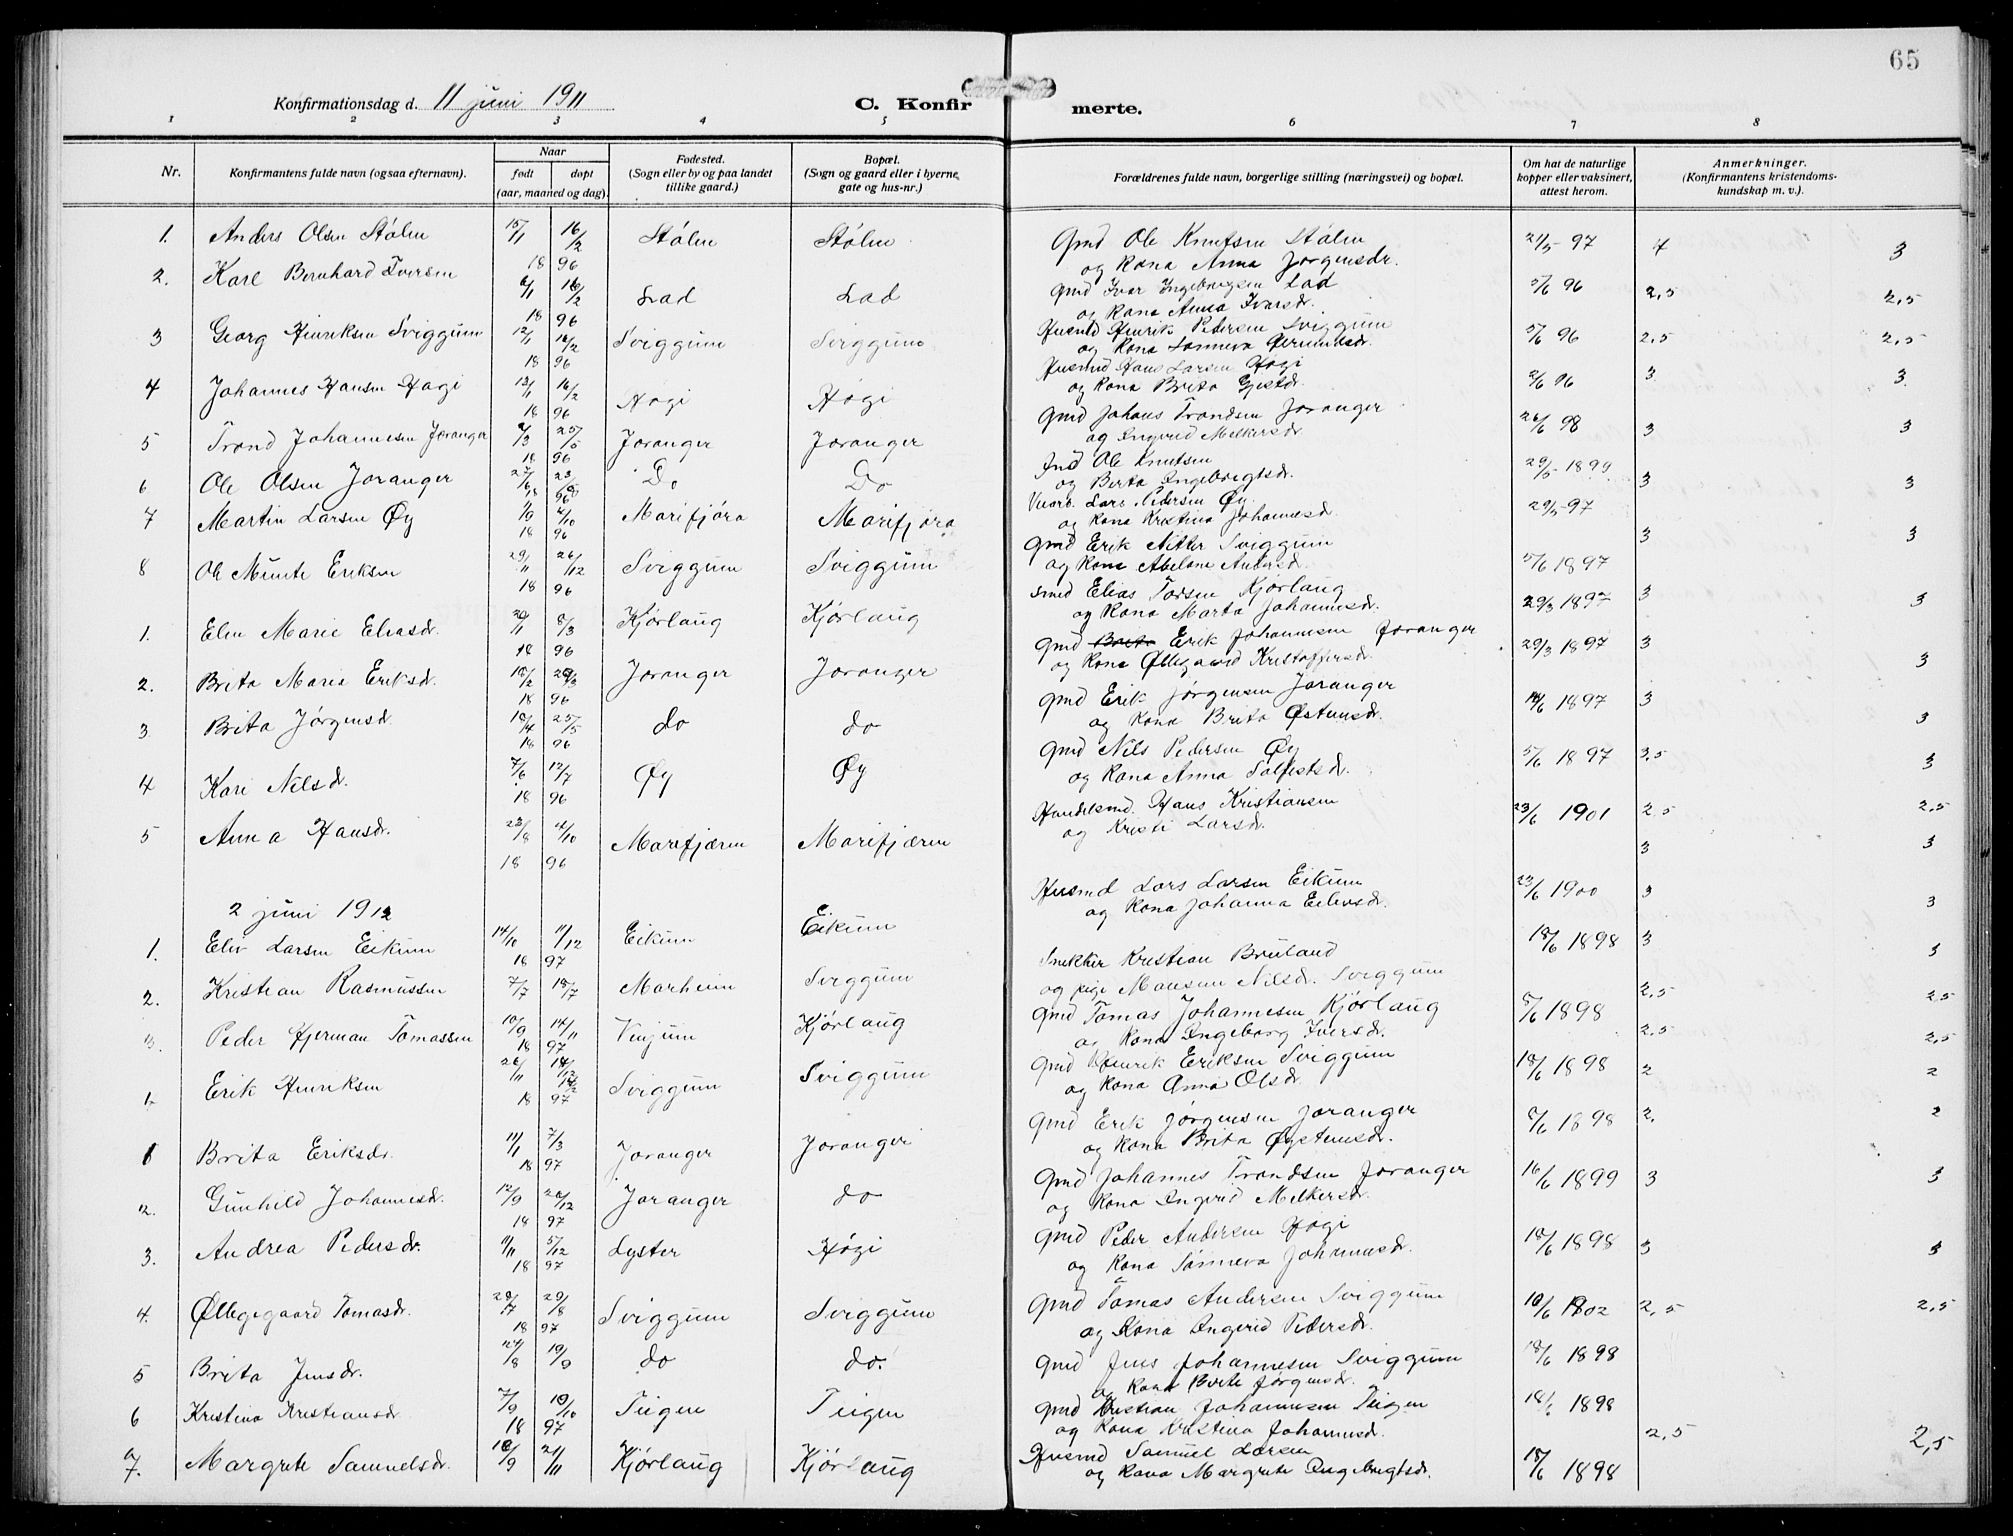 65
Konfirmationsdag d. 11 juni 1911 C. Konfirmerte.
1 2 3 4 5 6 7 8
Nr. Konfirmantens fulde navn (ogsaa efternavn). Naar født døpt (aar, maaned og dag). Fødested. (Sogn eller by og paa landet tillike gaard.) Bopæl. (Sogn og gaard eller i byerne gate og hus-nr.) Forældrenes fulde navn, borgerlige stilling (næringsvei) og bopæl. Om hat de naturlige kopper eller vaksinert, attest herom. Anmerkninger. (Konfirmantens kristendomskundskap m. v.).
1. Anders Olsen Stølen 15/1 16/2 18 96 Stølen Stølen Gmd Ole Knutsen Stølen 21/5 97 3
og Kona Anna Jørgensdr.
2. Karl Bernhard Iversen 6/1 16/2 18 96 Lad Lad Gmd Ivar Ingebrigtsen Lad 5/6 96 2,5 2,5
og Kona Anna Iversdr.
3 Georg Henriksen Sviggum 12/1 16/2 18 96 Sviggum Sviggum Husmd Henrik Pedersen Sviggum 5/6 96 2,5 2,5
og Kona Sønneva
4 Johannes Hansen Høgi 13/1 16/2 18 96 Høgi Høgi Husmd Hans Larsen Høgi 2/6 96 3 3.
og Kona Brita
5 Trond Johannesen Joranger 25/5 18 96 Joranger Joranger Gmd Johans Trondsen Joranger 26/6 98 3 3
og Ingerid Melkersdr.
6 Ole Olsen Joranger 18 96 Do Do Ole Knutsen 29/5 1899 3 3
og Berta Ingebrigtsdr.
7 Martin Larsen Øy 1/9 4/10 18 96 Marifjøra Marifjøra Lars Pedersen Øy 29/5 97 3 3
og Kona Kristina Johannesd.
8 Ole Munte Eriksen 29/11 26/12 18 96 Sviggum Sviggum Gmd Erik Nitter Sviggum 5/6 1897
og Kona Abelone Andersd.
1. Elen Marie Eliasdr. 8/3 18 96 Kjørlaug Kjørlaug Smed Elias Torsen Kjørlaug 29/3 1897 3 3
og Kona Marta Johannesdr.
2. Brita Marie Eriksdr. 18 96 Joranger Joranger Gmd Erik Johannesen Joranger 29/3 1897 3 3
og Kona Øllegaard Kristoffersdr.
3 Brita Jørgensdr. 25/5 18 96 do do Gmd Erik Jørgensen Joranger 14/6 1897 3 3
og Kona Brita Østensdr.
4 Kari Nilsdr. 7/6 12/7 18 96 Øy Øy Gmd Nils Pedersen Øy 5/6 1897 3,5 3
og Kona Anna Solfestsdr.
5 Anna Hansdr. 23/8 4/10 18 96 Marifjæren Marifjæren Handelsmd. Hans Kristiansen 23/6 1901 2,5 2,5
og Kristi Larsdr. 3 3
2 juni 1912
1. Eliv Larsen Eikum 14/10 11/12 18 97 Eikum Eikum Husmd Lars Larsen Eikum 23/6 1900 3 3
og Kona Johanna Eilevsdr.
2. Kristian Rasmussen 7/7 18/7 Marheim Sviggum Snekker Kristian Bruland 18/6 1898 3 3
og pige Nilsdr. Sviggum
3. Peder Hjerman Tomassen 10/9 14/11 18 97 Vinjum Kjørlaug Gmd Tomas Johannesen Kjørlaug 5/6 1898 2,5 2,5
og Kona Ingeborg Iversdr. 2,5 2,5
Erik Henriksen 26/11 18 97 Sviggum Sviggum Gmd Henrik Eriksen Sviggum 18/6 1898 2 2
og Kona Anna Olsdr.
1 Brita Eriksdr. 11/1 7/3 18 97 Joranger Joranger Gmd Erik Jørgensen Joranger 1898 2. 2
og Kona Brita Øystensdr.
2. Gunhild Johannesdr. 12/9 18 97 Joranger do Gmd Johannes Trondsen Joranger 16/6 1899 3 3
og Kona Ingerid Melkersdr.
3. Andrea Pedersdr. 11/11 5/12 18 97 Lyster Høgi Gmd Peder Andersen Høgi 18/6 1898 3 3
og Kona Sønneva Johannesdr.
4. Øllegaard Tomasdr. 29/8 18 97 Sviggum Sviggum Gmd Tomas Andersen Sviggum 10/6 1902 2,5 2,5
og Kona Ingerid Pedersdr.
5 Brita Jensdr. 19/9 do do. Gmd Jens Johannesen Sviggum 18/6 1898
og Kona Brita Jørgensdr.
6 Kristina Kristiansdr. 7/9 10/10 18 97 Teigen Teigen Gmd Kristian Johannesen Teigen 1898
og Kona Kristina Johannesdr. 2,5 2,5
7. Margrete Samuelsdr. 10/9 2/11 Kjørlaug Kjørlaug Husmd Samuel Larsen 18/6 1898
og Kona Margrete Ingebrigtsdr.